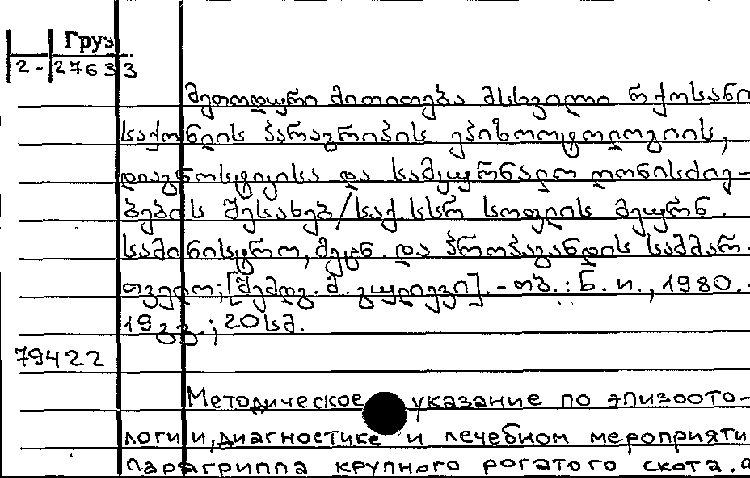 Груз
2-27633
მეთოდური მითითება მსხვილი რქოსანი
საქონლის პარაგრიპის ეპიზოოტოლოგიის,
დიაგნოსტიკისა და სამკურნალო ღონისძიე-
ბების შესახებ/საქ.სსრ სოფლის მეურნ.
სამინისტრო, მეცნ. და პროპაგანდის სამმარ-
თველო; [შემდგ. მ. ]. - თბ.: ნ. и., 1980. -
19 გვ.; 20 სმ.
79422
Методическое указание по эпизоото-
логии, диагностике и лечебном мероприяти
парагриппа крупного рогатого скота.